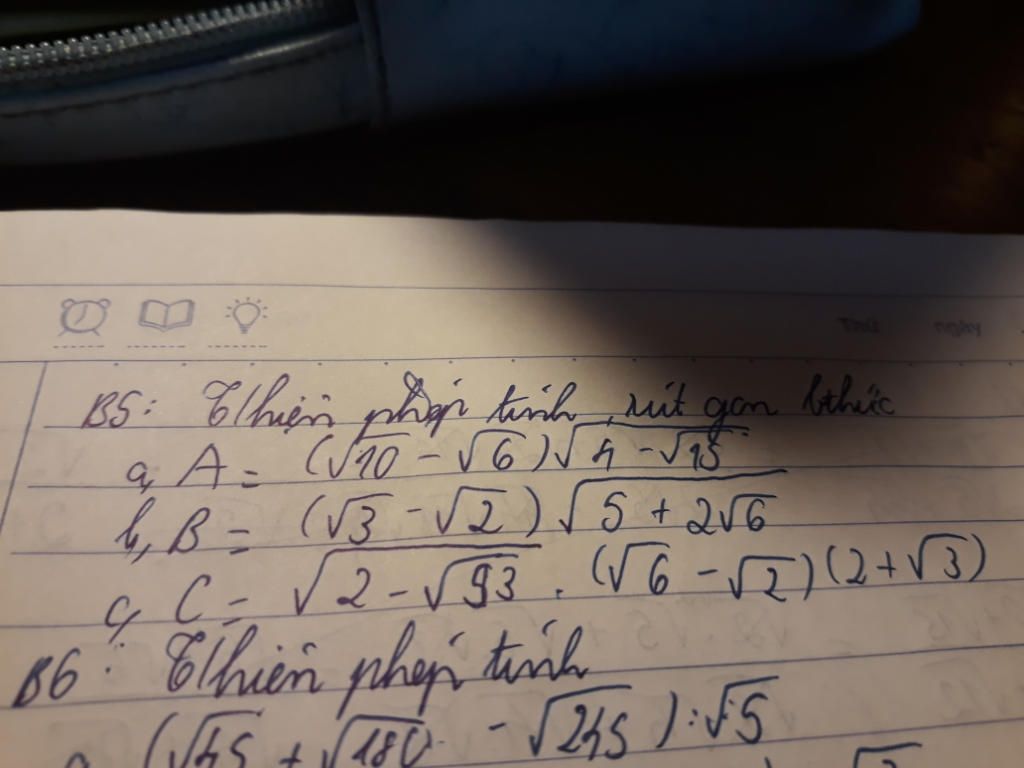 Thứ ngày
B5: T/hiện phép tính, rút gọn b.thức
a, A = (√10 - √6)√4 - √15
b, B = (√3 - √2)√5 + 2√6
c, C = √2 - √93 . (√6 - √2)(2 + √3)
B6: T/hiện phép tính
a (√45 + √180 - √245) : √5